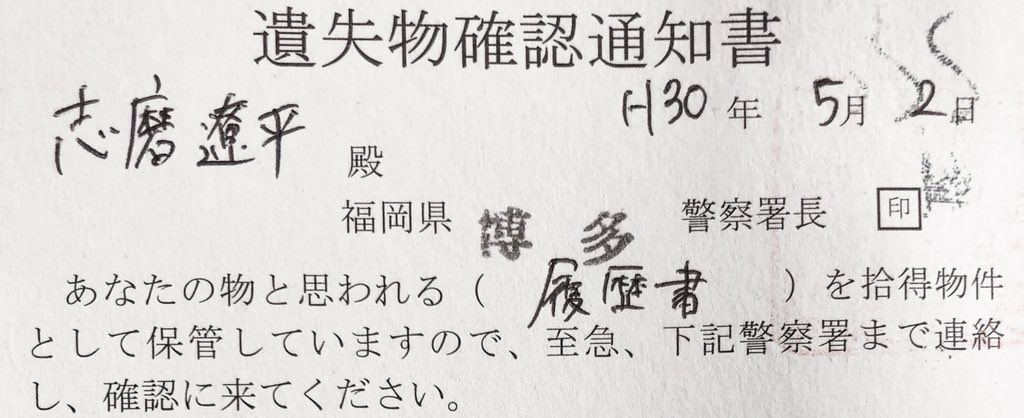 遺失物確認通知書
H30年 5月 2日
志磨遼平 殿
福岡県 博多 警察署長 印
あなたの物と思われる（ 履歴書 ）を拾得物件
として保管していますので、至急、下記警察署まで連絡
し、確認に来てください。